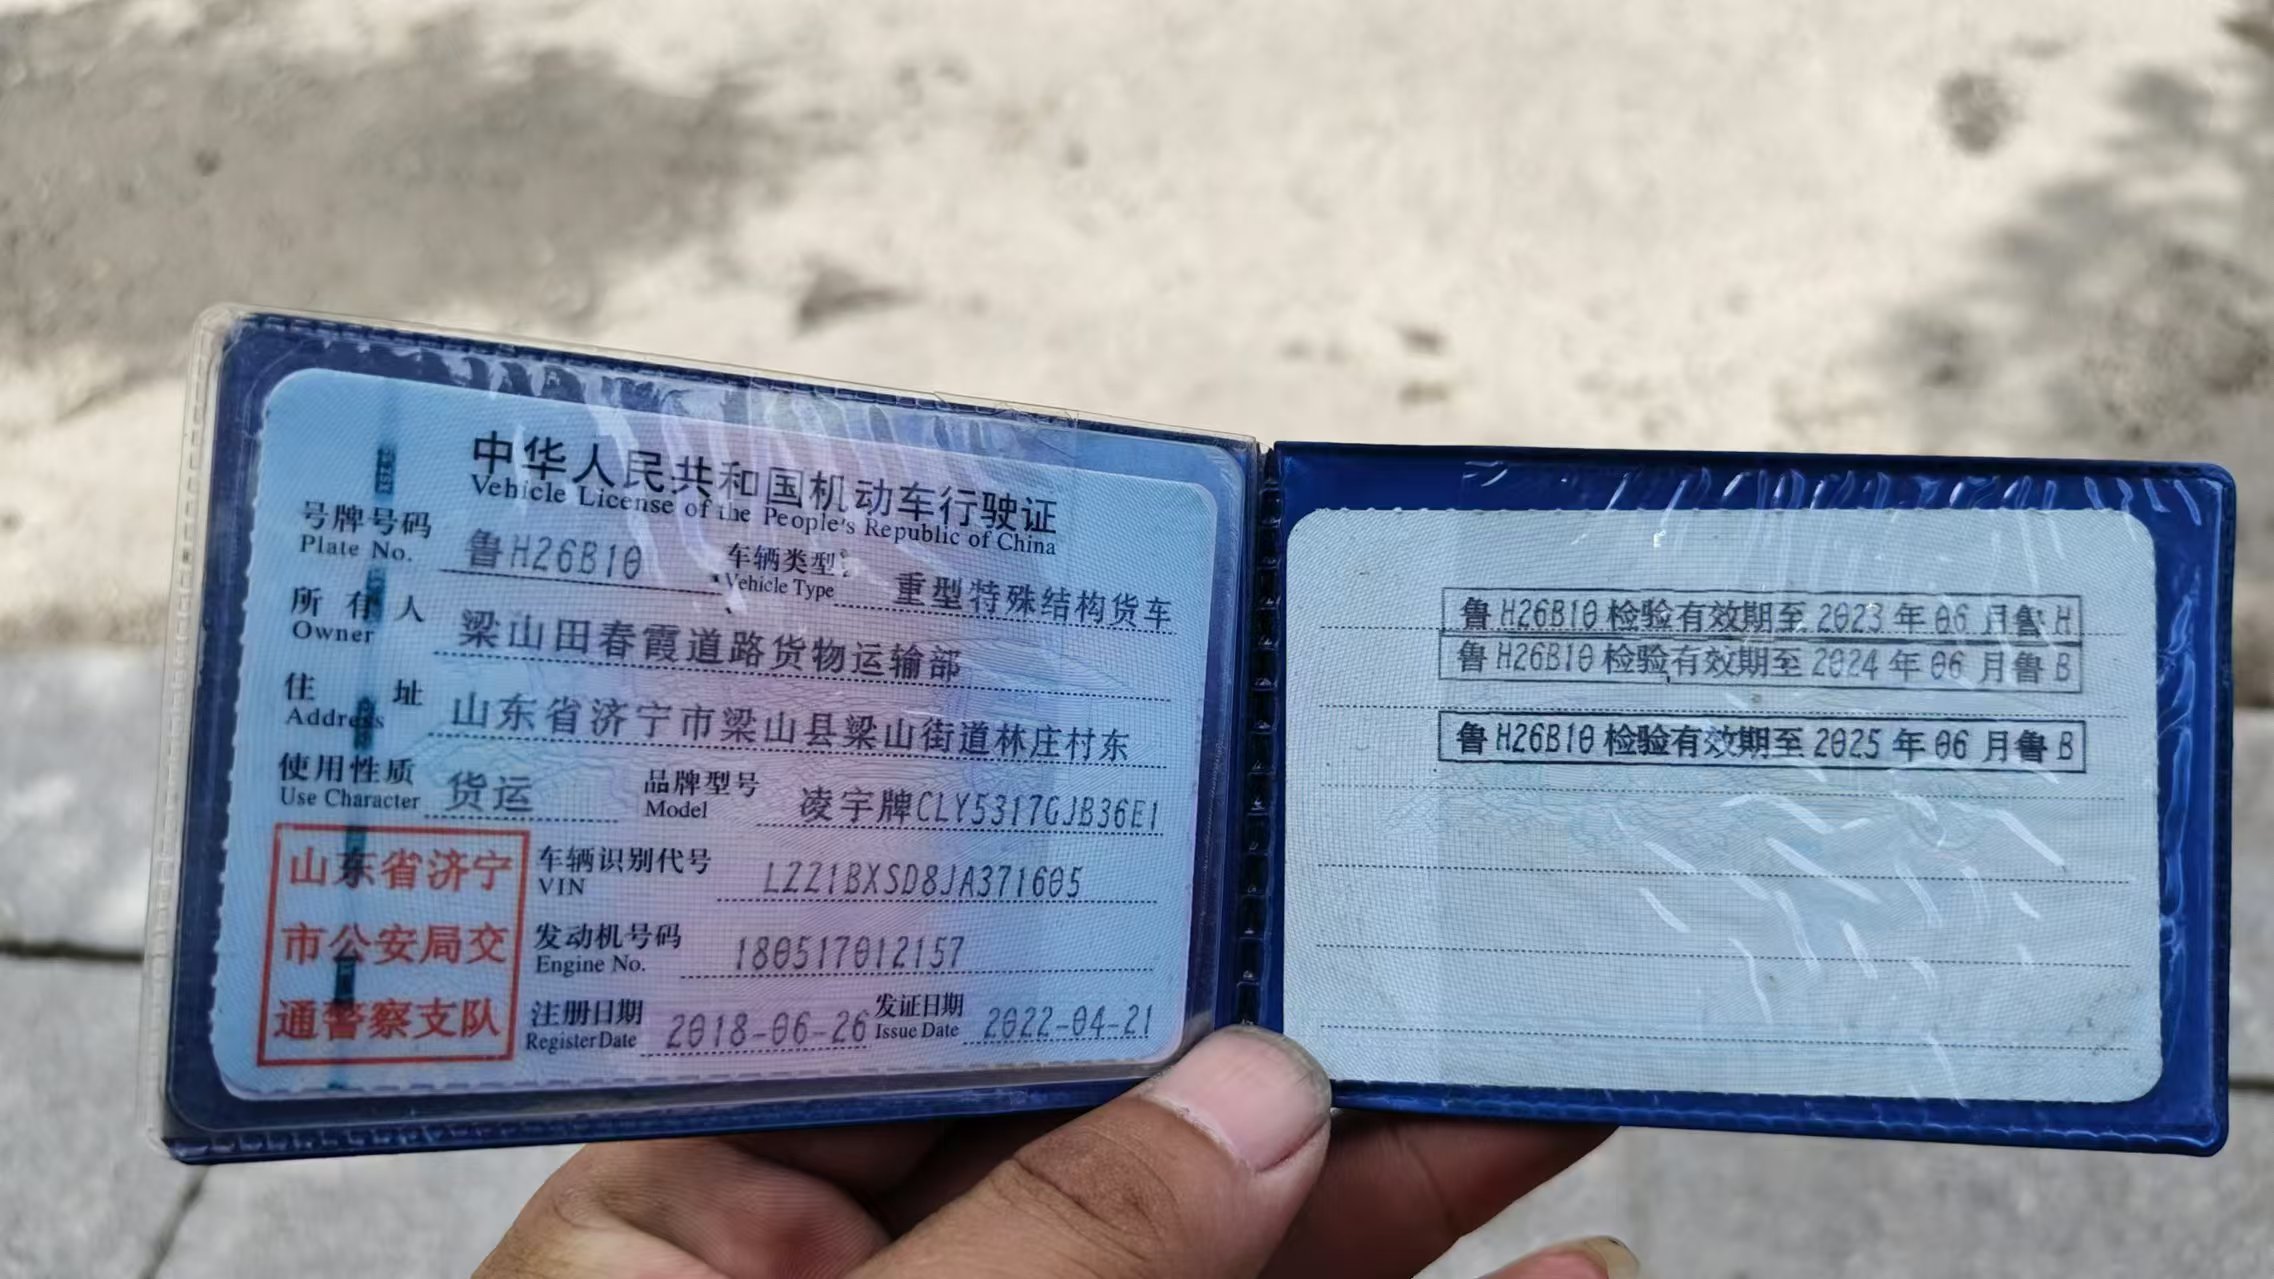 中华人民共和国机动车行驶证
Vehicle License of the People's Republic of China
号牌号码 鲁H26B10 车辆类型 重型特殊结构货车
Plate No. Vehicle Type
所有人 梁山田春霞道路货物运输部
Owner
住址 山东省济宁市梁山县梁山街道林庄村东
Address
使用性质 货运 品牌型号 凌宇牌CLY5317GJB36E1
Use Character Model
山东省济宁
市公安局交
通警察支队
车辆识别代号 LZZ1BXSD8JA371605
VIN
发动机号码 180517012157
Engine No.
注册日期 2018-06-26 发证日期 2022-04-21
Register Date Issue Date
鲁H26B10检验有效期至2023年06月鲁H
鲁H26B10检验有效期至2024年06月鲁B
鲁H26B10检验有效期至2025年06月鲁B